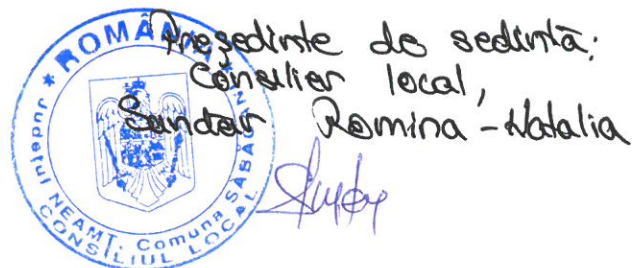 Președinte de ședință:
Consilier local,
Sandar Romina - Natalia
* ROMÂNIA *
Judeţul NEAMŢ, Comuna SĂBĂOANI
CONSILIUL LOCAL